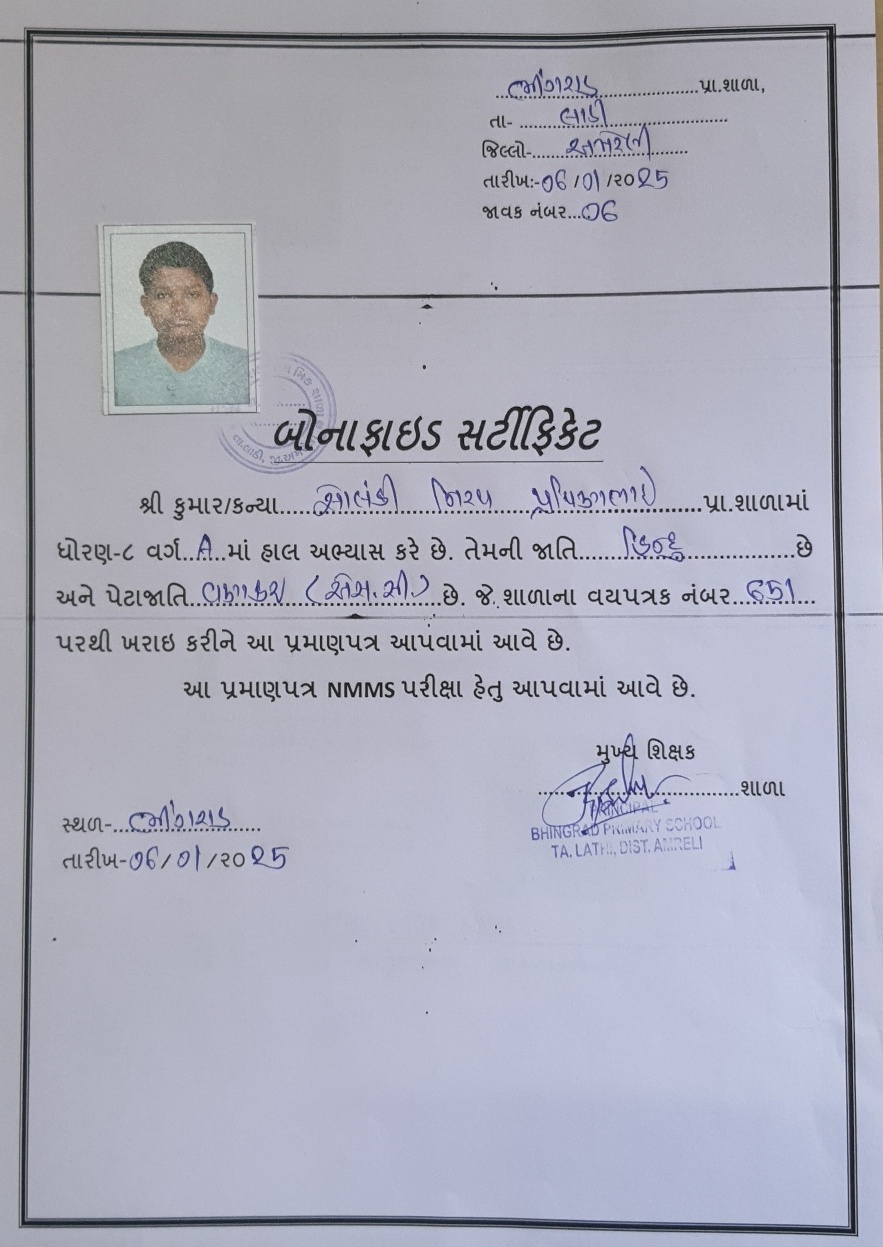 ભીંગરાડ પ્રા.શાળા,
તા- લાઠી
જિલ્લો- અમરેલી
તારીખ:-06/01/૨૦25
જાવક નંબર...06
બોનાફાઇડ સર્ટીફિકેટ
શ્રી કુમાર/કન્યા સોલંકી પ્રા.શાળામાં
ધોરણ-૮ વર્ગ..A..માં હાલ અભ્યાસ કરે છે. તેમની જાતિ હિન્દુ છે
અને પેટાજાતિ વણકર (એસ.સી.) છે. જે શાળાના વયપત્રક નંબર 651
પરથી ખરાઇ કરીને આ પ્રમાણપત્ર આપવામાં આવે છે.
આ પ્રમાણપત્ર NMMS પરીક્ષા હેતુ આપવામાં આવે છે.
મુખ્ય શિક્ષક
શાળા
PRINCIPAL
BHINGRAD PRIMARY SCHOOL
TA. LATHI, DIST. AMRELI
સ્થળ- ભીંગરાડ
તારીખ-06/01/૨૦25